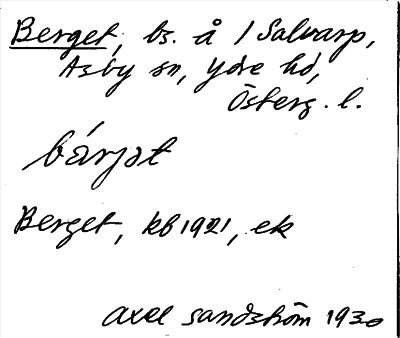 Berget, bs. å 1 Salvarp,
Asby sn, Ydre hd,
Österg. l.
bárjɘt
Berget, kb 1921, ek
Axel Sandström 1930